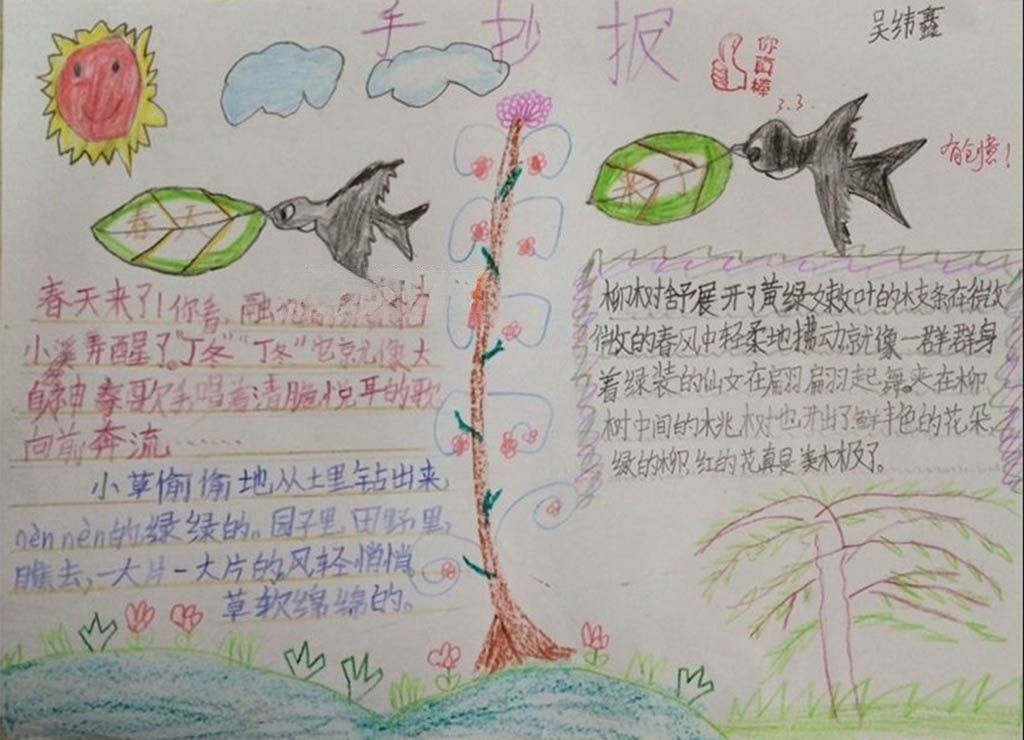 手抄报
吴纬鑫
你真棒
3.3.
有创意！
春天
来了
春天来了！你看，融化的
小溪弄醒了。"丁冬""丁冬"它就像大
自神奏歌手唱着清脆悦耳的歌
向前奔流……
小草偷偷地从土里钻出来，
nèn nèn的绿绿的。园子里，田野里，
瞧去，一大片一大片的，风轻悄悄，
草软绵绵的。
柳树舒展开了黄绿嫩叶的枝条在微
微的春风中轻柔地拂动就像一群群身
着绿装的仙女在扁羽扁羽起舞。夹在柳
树中间的桃树也开出了鲜丰色的花朵，
绿的柳，红的花真是美木极了。